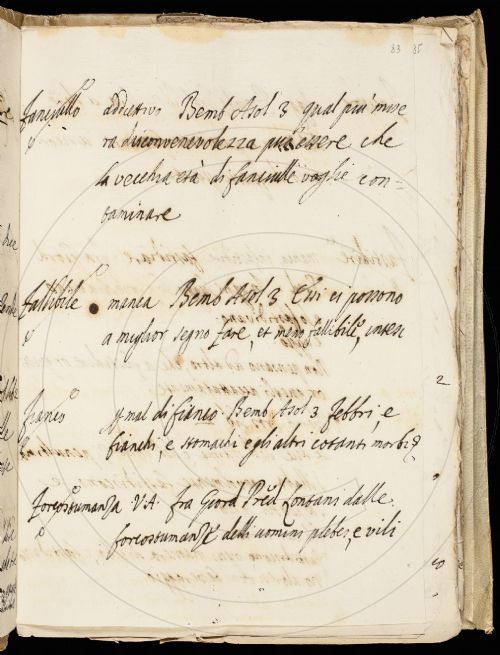 83 85
fanciullo addiettivo Bemb Asol 3 qual più mise
ra disconvenevolezza può essere che
la vecchia età di fanciulle voglie con=
taminare
fallibile manca Bemb Asol 3 Essi ci possono
a miglior segno fare, et meno fallibile, intesi
fianco p mal di fianco Bemb Asol 3 febbri, e
fianchi, e stomachi e gli altri cotanti morbi
forcostumanza V.A. fra Giord Pred Lontani dalle
forcostumanze delli uomini plebei, e vili
2